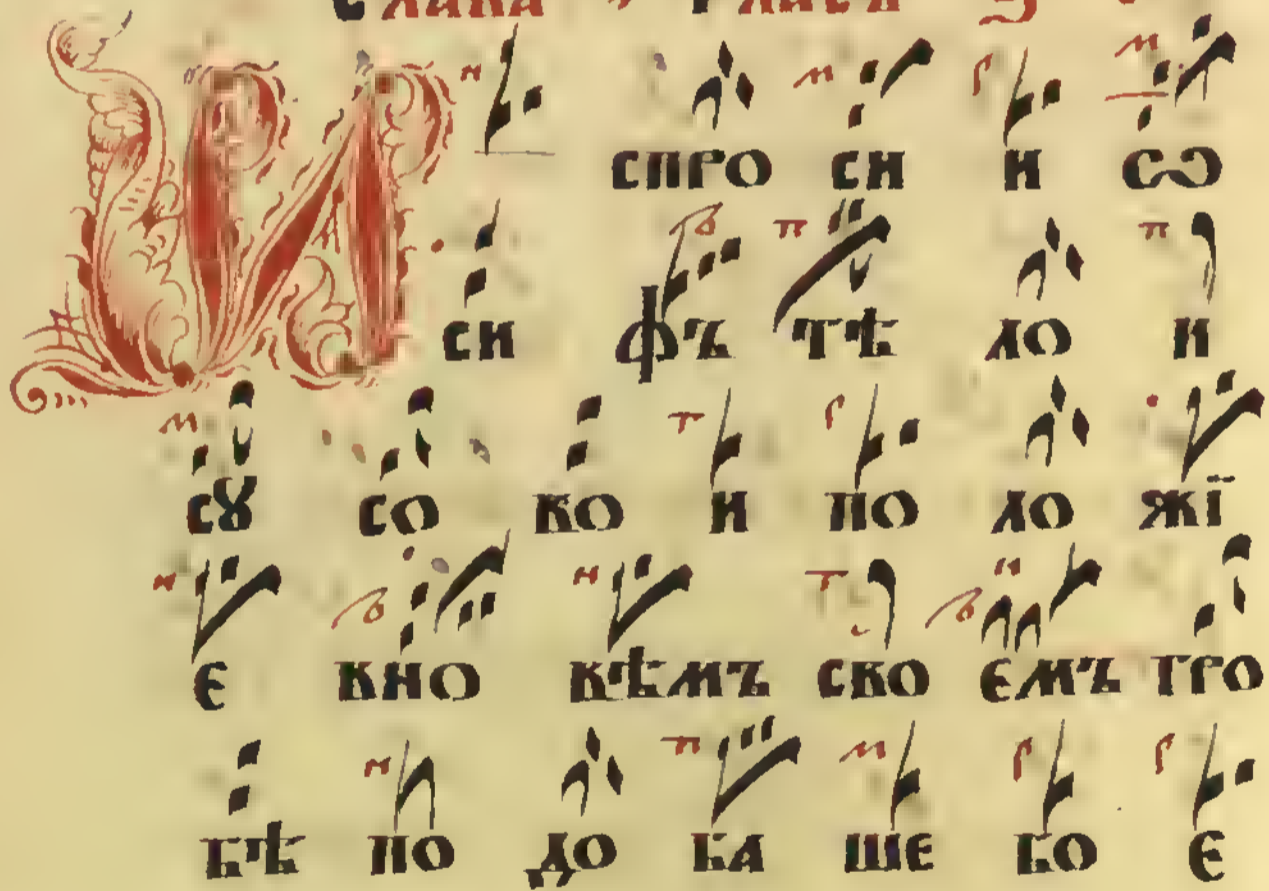 Слава , гласъ
И спро си и сѡ
си фъ тѣ ло и
сꙋ со во и по ло жї
є вно вѣмъ сво ємъ гро
бѣ по до ба ше бо є